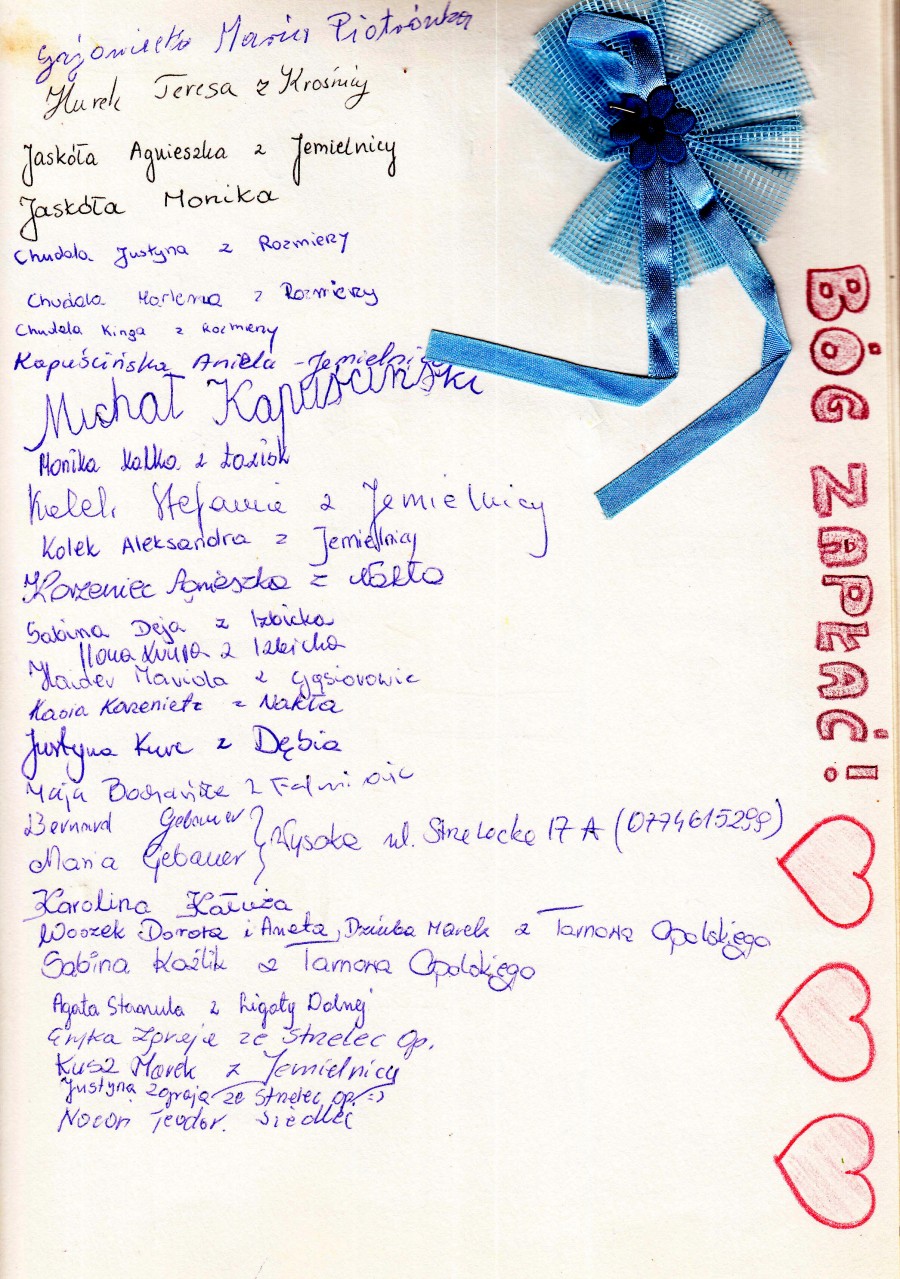 Maria Piotrówka
Hurek Teresa z Krośnicy
Jaskóła Agnieszka z Jemielnicy
Jaskóła Monika
Chudala Justyna z Rozmierzy
Chudala Marlena z Rozmierzy
Chudala Kinga z Rozmierzy
Kapuścińska Aniela - Jemielnica
Michał Kapuściński
Monika Kalka z Łazisk
Stefania z Jemielnicy
Kolek Aleksandra z Jemielnicy
Korzeniec Agnieszka z Nakła
Sabina Deja z Izbicka
Ilona Krupa z Izbicka
Mariola z Gąsiorowic
Kasia Korzenietz z Nakła
Justyna Kurc z Dębia
Maja z
Bernard Gebauer
Maria Gebauer
Wysoka ul. Strzelecka 17 A (0774615299)
Karolina Kałuża
Woszek Dorota i Aneta, Dziuba Marek z Tarnowa Opolskiego
Sabina Koźlik z Tarnowa Opolskiego
Agata Stannula z Ligoty Dolnej
Eryka ze Strzelec Op.
Kusz Marek z Jemielnicy
Justyna ze Strzelec Op. :)
Nocoń Teodor. Siedlec
BÓG ZAPŁAĆ!